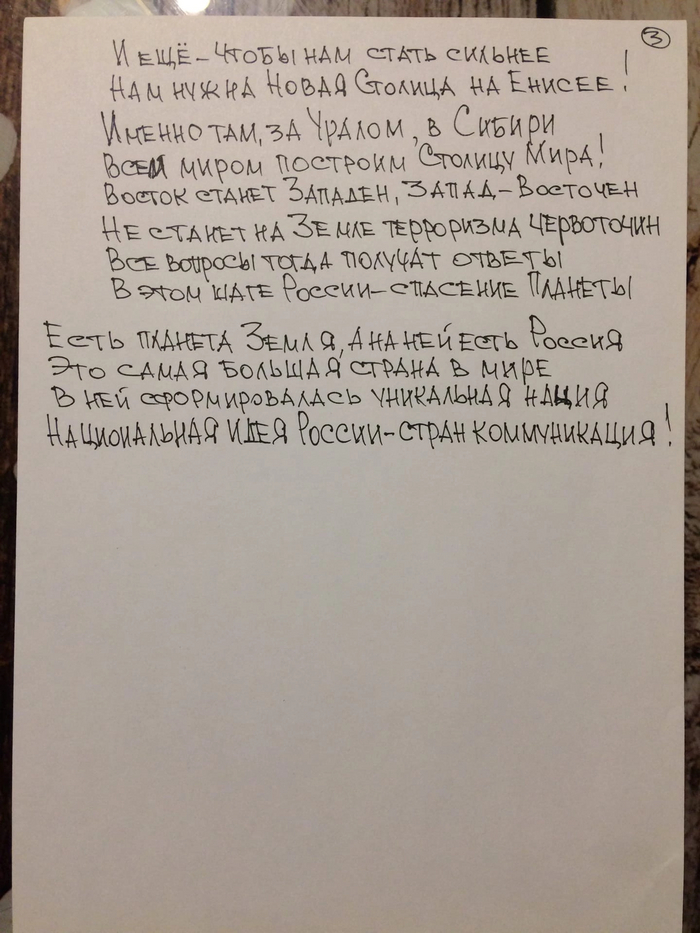 3
И ещё – чтобы нам стать сильнее
Нам нужна Новая Столица на Енисее!
Именно там, за Уралом, в Сибири
Всем миром построим Столицу Мира!
Восток станет Западен, Запад – Восточен
Не станет на Земле терроризма червоточин
Все вопросы тогда получат ответы
В этом шаге России – спасение Планеты
Есть планета Земля, а на ней есть Россия
Это самая большая страна в мире
В ней сформировалась уникальная нация
Национальная идея России – стран коммуникация!